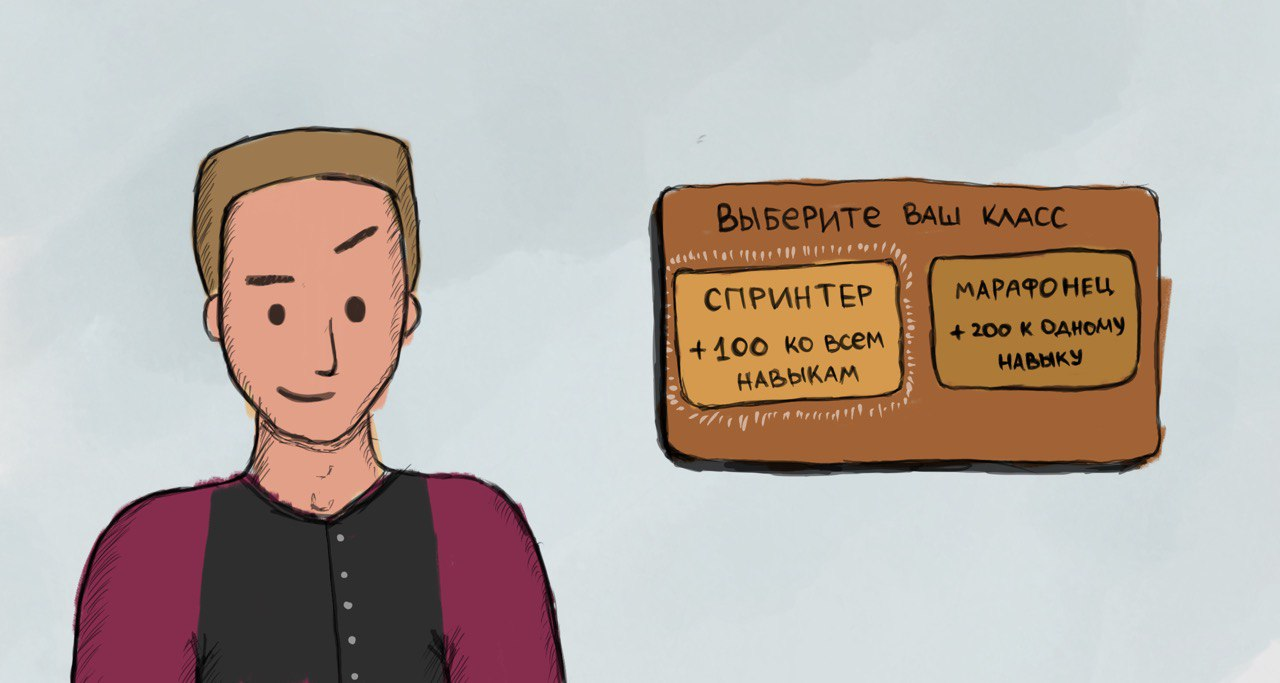 Выберите ваш класс
Спринтер
+100 ко всем
навыкам
Марафонец
+200 к одному
навыку